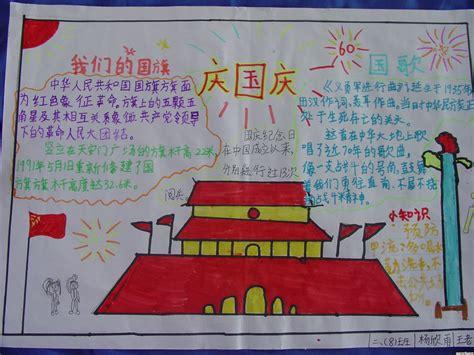 我们的国旗
中华人民共和国国旗旗面
为红色象征革命,旗上的五颗五
角星及其相互关系象征共产党领导
下的革命人民大团结。
竖立在天安门广场的旗杆高22米,
1991年5月1日重新修建了国
旗旗杆高度达32.6米
庆国庆
60
国庆纪念日
在中国成立以来,
分别举行过13次
阅兵。
国歌
《义勇军进行曲》诞生于1935年
田汉作词,聂耳作曲,当时中华民族正
处于生死存亡的关头。
这首在中华大地上歌
唱了近70年的歌曲,
像一支战斗的号角,鼓舞
着我们勇往直前,不屈不挠
的战斗精神。
小知识
预防
甲流
二、(8)班
杨欣雨